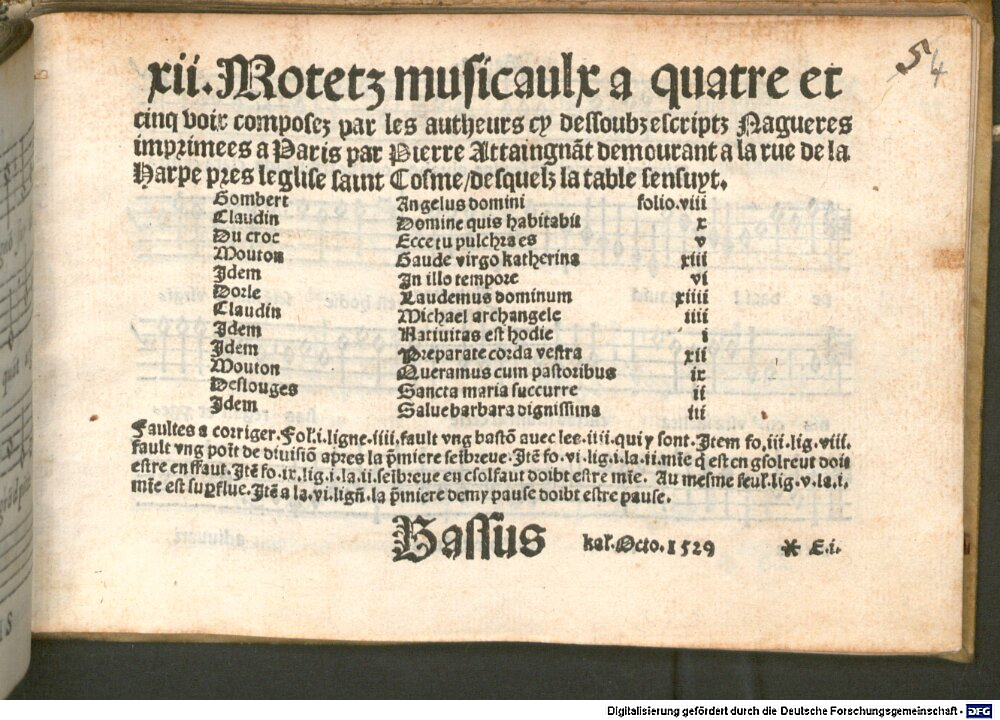 54
xii. Motetz musicaulx a quatre et
cinq voix composez par les autheurs cy dessoubz escriptz Nagueres
imprimees a Paris par Pierre Attaingnãt demourant a la rue de la
Harpe pres leglise saint Cosme/desquelz la table sensuyt.
Gombert Angelus domini folio.viii
Claudin Domine quis habitabit x
Du croc Ecce tu pulchra es v
Mouton Gaude virgo katherina xiii
Idem In illo tempore vi
Dorle Laudemus dominum xiiii
Claudin Michael archangele iiii
Idem Nativitas est hodie i
Idem Preparate corda vestra xii
Mouton Queramus cum pastoribus ix
Deslouges Sancta maria succurre ii
Idem Salve barbara dignissima iii
Faultes a corriger. Fol. i. ligne. iiii. fault vng bastõ avec lee. iiii. qui y sont. Item fo, iii. lig. viii.
fault vng poĩt de divisiõ apres la p̃miere seibreue. Itẽ fo. vi. lig. i. la. ii. mĩe q̃ est en gsolreut doit
estre en ffaut. Itẽ fo. ix. lig. i. la. ii. seĩbreue en csolfaut doibt estre mĩe. Au mesme feul. lig. v. la. i.
mĩe est supflue. Itẽ a la. vi. lign̄. la p̃miere demy pause doibt estre pause.
Bassus kal. Octo. 1529 * E.i.
Digitalisierung gefördert durch die Deutsche Forschungsgemeinschaft - DFG